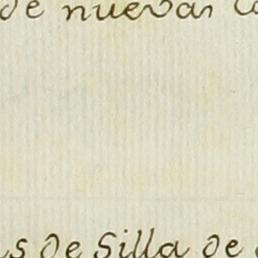 de nuevas
s de Silla de